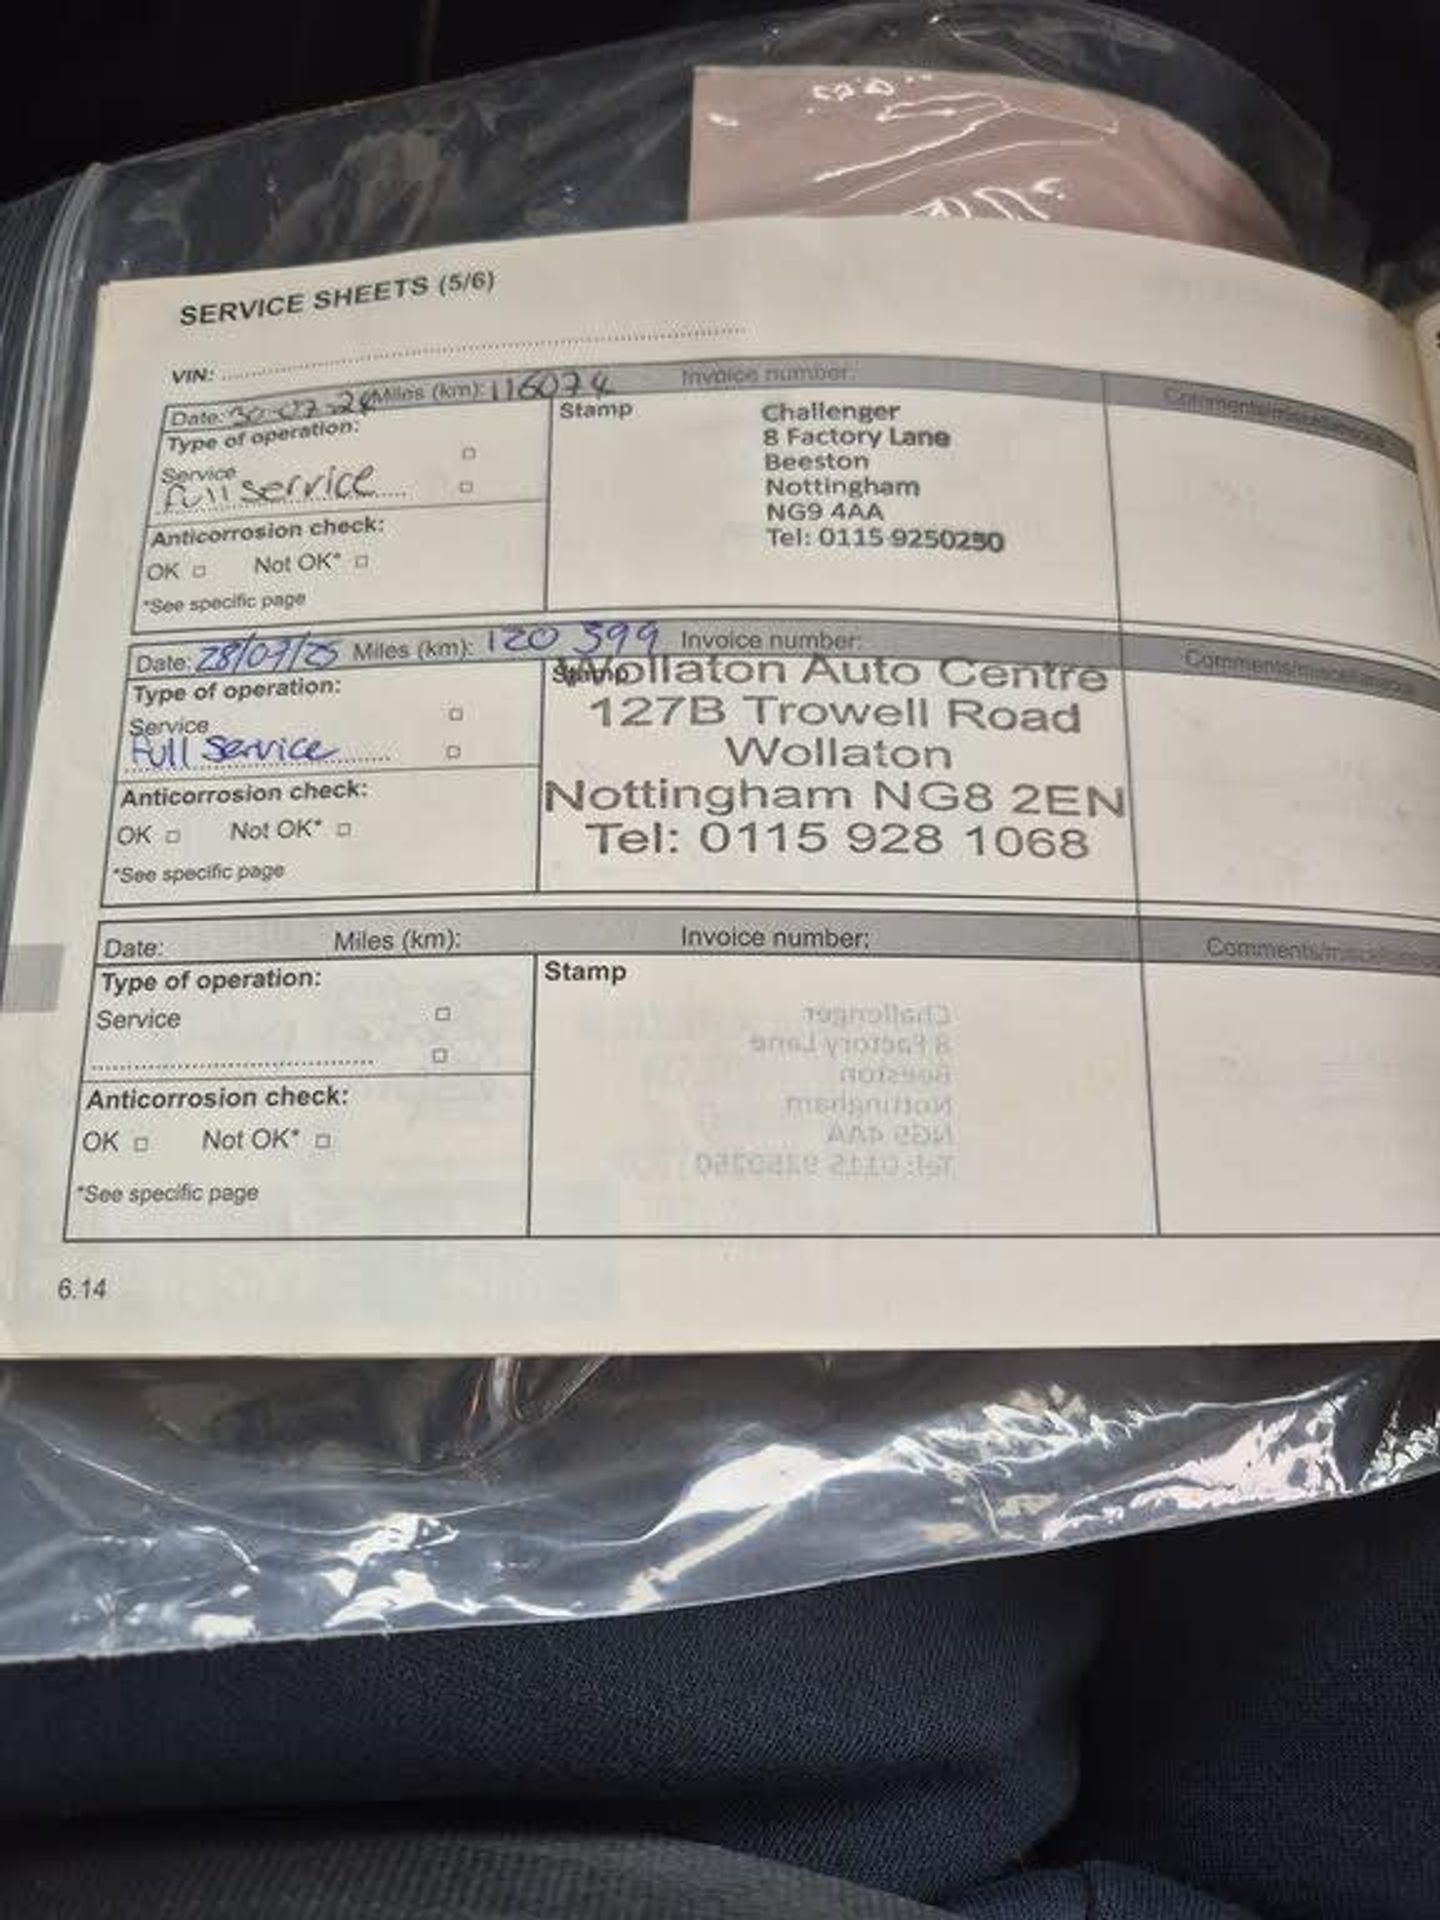 SERVICE SHEETS (5/6)
VIN: ..........
Date: 30-07-24 Miles (km): 116074 Invoice number: Comments/miscellaneous
Type of operation:
Service
full service
Anticorrosion check:
OK □ Not OK* □
*See specific page
Stamp
Challenger
8 Factory Lane
Beeston
Nottingham
NG9 4AA
Tel: 0115 9250250
Date: 28/07/25 Miles (km): 120 399 Invoice number: Comments/miscellaneous
Type of operation:
Service
Full Service
Anticorrosion check:
OK □ Not OK* □
*See specific page
Stamp
Wollaton Auto Centre
127B Trowell Road
Wollaton
Nottingham NG8 2EN
Tel: 0115 928 1068
Date: Miles (km): Invoice number: Comments/miscellaneous
Type of operation:
Service
Anticorrosion check:
OK □ Not OK* □
*See specific page
Stamp
Challenger
8 Factory Lane
Beeston
Nottingham
NG9 4AA
Tel: 0115 9250250
6.14